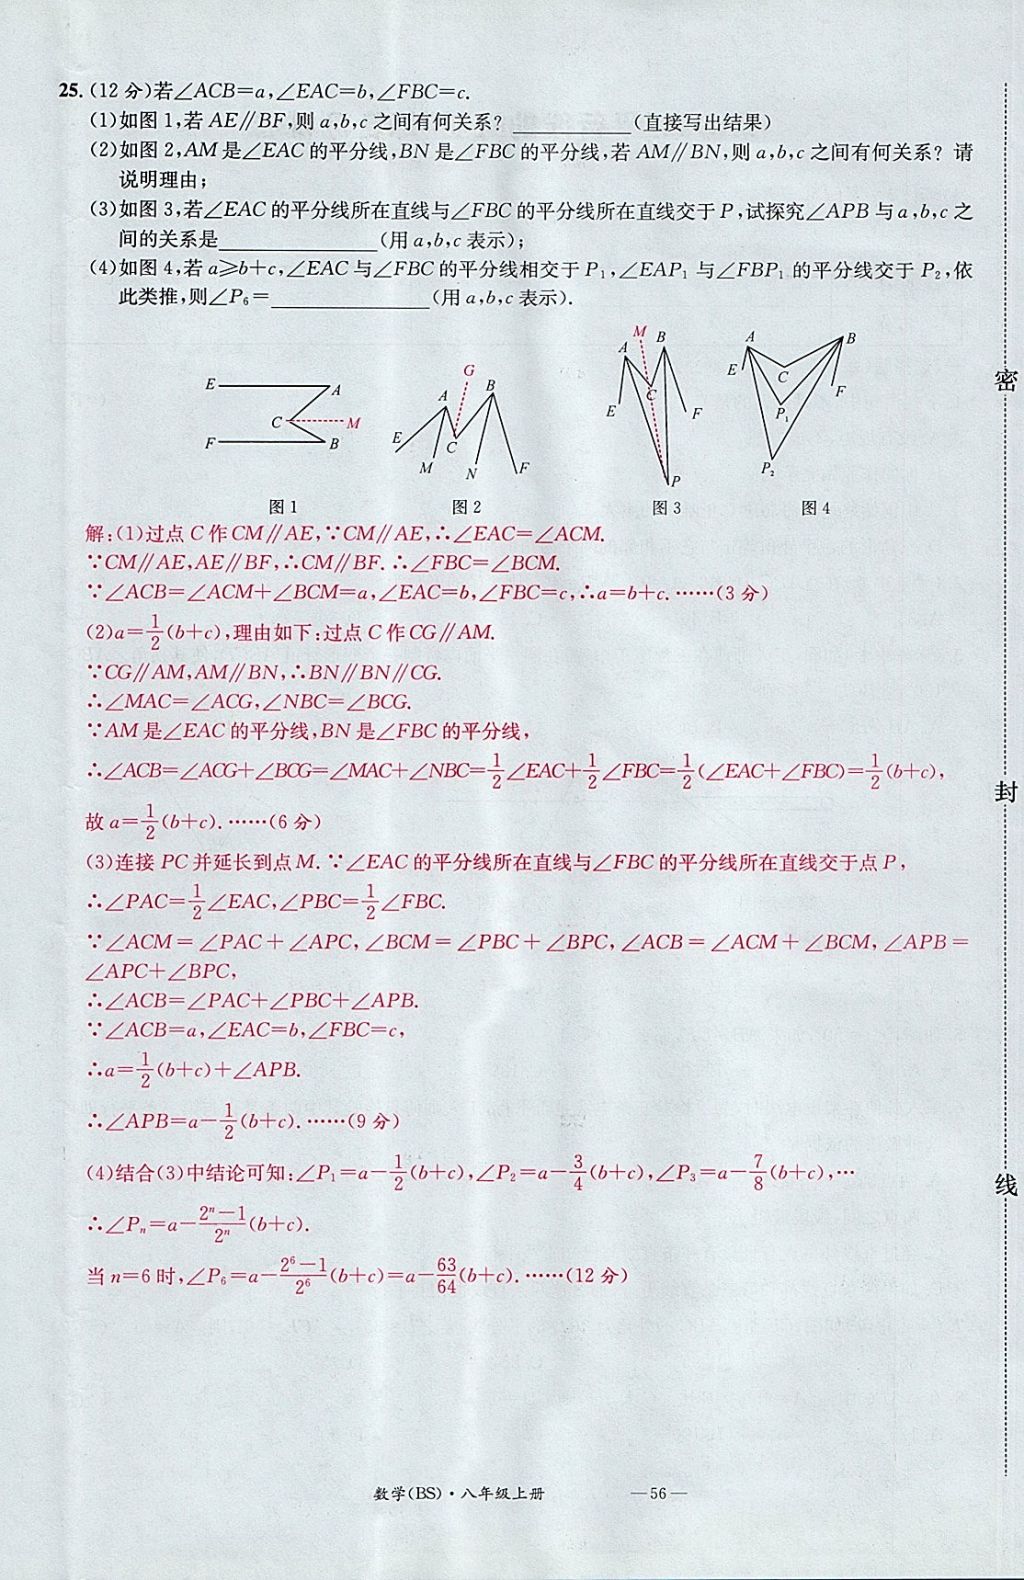 25.(12分)若∠ACB=a,∠EAC=b,∠FBC=c.
(1)如图1,若AE∥BF,则a,b,c之间有何关系?__________(直接写出结果)
(2)如图2,AM是∠EAC的平分线,BN是∠FBC的平分线,若AM∥BN,则a,b,c之间有何关系?请
说明理由;
(3)如图3,若∠EAC的平分线所在直线与∠FBC的平分线所在直线交于P,试探究∠APB与a,b,c之
间的关系是______________(用a,b,c表示);
(4)如图4,若a≥b+c,∠EAC与∠FBC的平分线相交于P₁,∠EAP₁与∠FBP₁的平分线交于P₂,依
此类推,则∠P₆=______________(用a,b,c表示).
E A C M F B
G A B E C M N F
M B A C E F P
A B E C F P₁ P₂
图1 图2 图3 图4
解:(1)过点C作CM∥AE,∵CM∥AE,∴∠EAC=∠ACM.
∵CM∥AE,AE∥BF,∴CM∥BF.∴∠FBC=∠BCM.
∵∠ACB=∠ACM+∠BCM=a,∠EAC=b,∠FBC=c,∴a=b+c.……(3分)
(2)a=1/2(b+c),理由如下:过点C作CG∥AM.
∵CG∥AM,AM∥BN,∴BN∥BN∥CG.
∴∠MAC=∠ACG,∠NBC=∠BCG.
∵AM是∠EAC的平分线,BN是∠FBC的平分线,
∴∠ACB=∠ACG+∠BCG=∠MAC+∠NBC=1/2∠EAC+1/2∠FBC=1/2(∠EAC+∠FBC)=1/2(b+c),
故a=1/2(b+c).……(6分)
(3)连接PC并延长到点M.∵∠EAC的平分线所在直线与∠FBC的平分线所在直线交于点P,
∴∠PAC=1/2∠EAC,∠PBC=1/2∠FBC.
∵∠ACM=∠PAC+∠APC,∠BCM=∠PBC+∠BPC,∠ACB=∠ACM+∠BCM,∠APB=
∠APC+∠BPC,
∴∠ACB=∠PAC+∠PBC+∠APB.
∵∠ACB=a,∠EAC=b,∠FBC=c,
∴a=1/2(b+c)+∠APB.
∴∠APB=a-1/2(b+c).……(9分)
(4)结合(3)中结论可知:∠P₁=a-1/2(b+c),∠P₂=a-3/4(b+c),∠P₃=a-7/8(b+c),…
∴∠Pₙ=a-(2ⁿ-1)/2ⁿ(b+c).
当n=6时,∠P₆=a-(2⁶-1)/2⁶(b+c)=a-63/64(b+c).……(12分)
密
封
线
数学(BS)·八年级上册 —56—